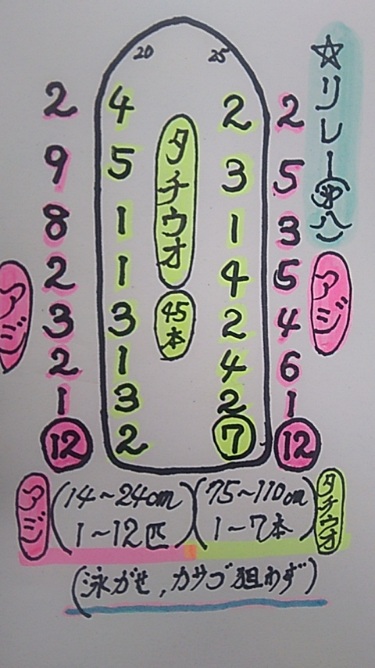 ☆リレー船
20 25
2 4 2 2
9 5 3 5
8 1 1 3
2 1 4 5
3 3 2 4
2 1 4 6
1 3 2 1
12 2 7 12
タチウオ
45本
アジ
アジ
アジ(14~24cm 1~12匹)
(75~110cm 1~7本)タチウオ
(泳がせ,カサゴ狙わず)